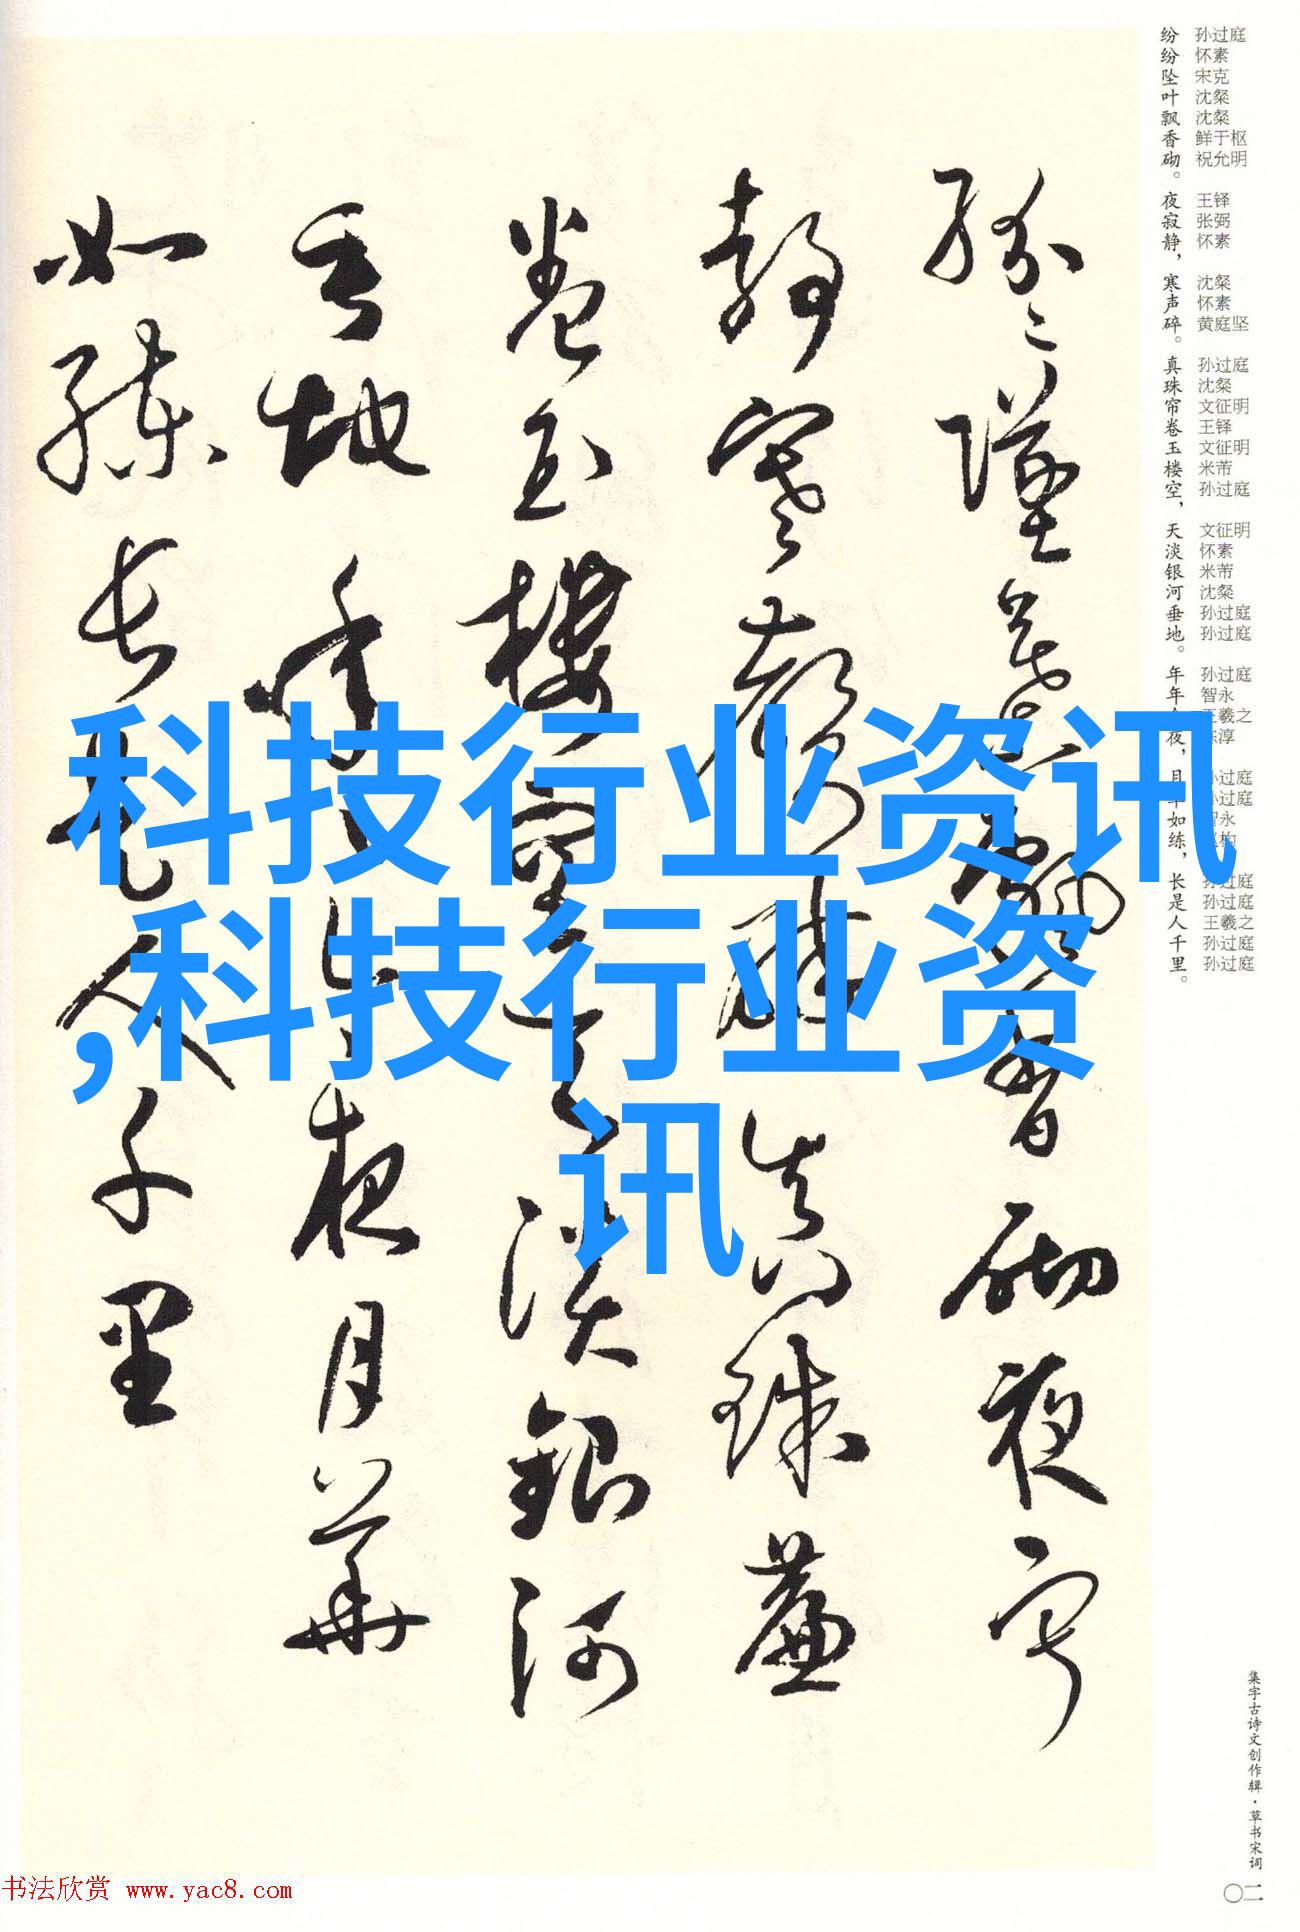 纷纷坠叶飘香砌。夜寂静，寒声碎。真珠帘卷玉楼空，天淡银河垂地。年年夜，月如练，长是人千里。
孙过庭 怀素 宋克 沈粲 沈粲 鲜于枢 祝允明 王铎 张弼 怀素 沈粲 怀素 黄庭坚 孙过庭 沈粲 文征明 王铎 文征明 米芾 孙过庭 文征明 怀素 米芾 沈粲 孙过庭 孙过庭 孙过庭 智永 王羲之 陈淳 孙过庭 孙过庭 智永 孙过庭 孙过庭 王羲之 孙过庭 孙过庭
纷纷坠叶飘香砌夜寂
静寒声碎真珠簾
卷玉楼空天淡銀河
垂地年年今夜月華
如練长是人千里
科技行业资讯
,科技行业资
讯
集字古诗文创作辑·草书宋词
〇二
书法欣赏 www.yac8.com